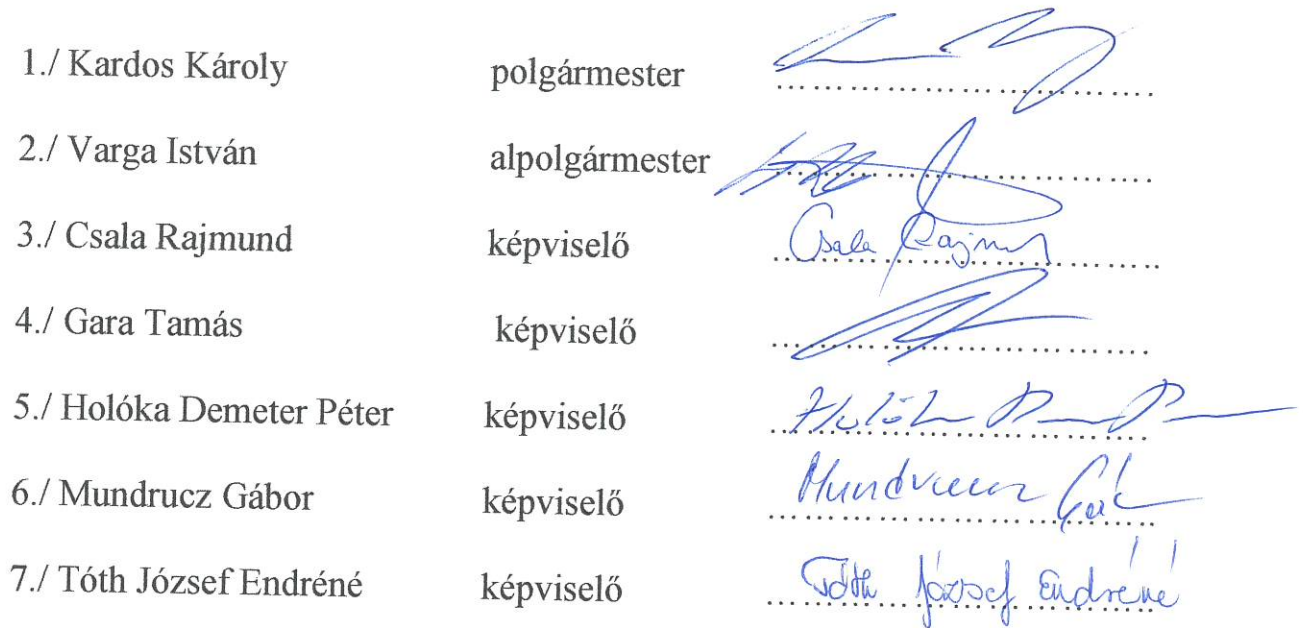 1./ Kardos Károly polgármester ........................................
2./ Varga István alpolgármester ........................................
3./ Csala Rajmund képviselő Csala Rajmund
4./ Gara Tamás képviselő ........................................
5./ Holóka Demeter Péter képviselő Holóka
6./ Mundrucz Gábor képviselő Mundrucz Gábor
7./ Tóth József Endréné képviselő Tóth József Endréné